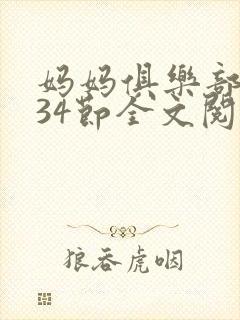 妈妈俱樂部
34节全文阅
狼吞虎咽